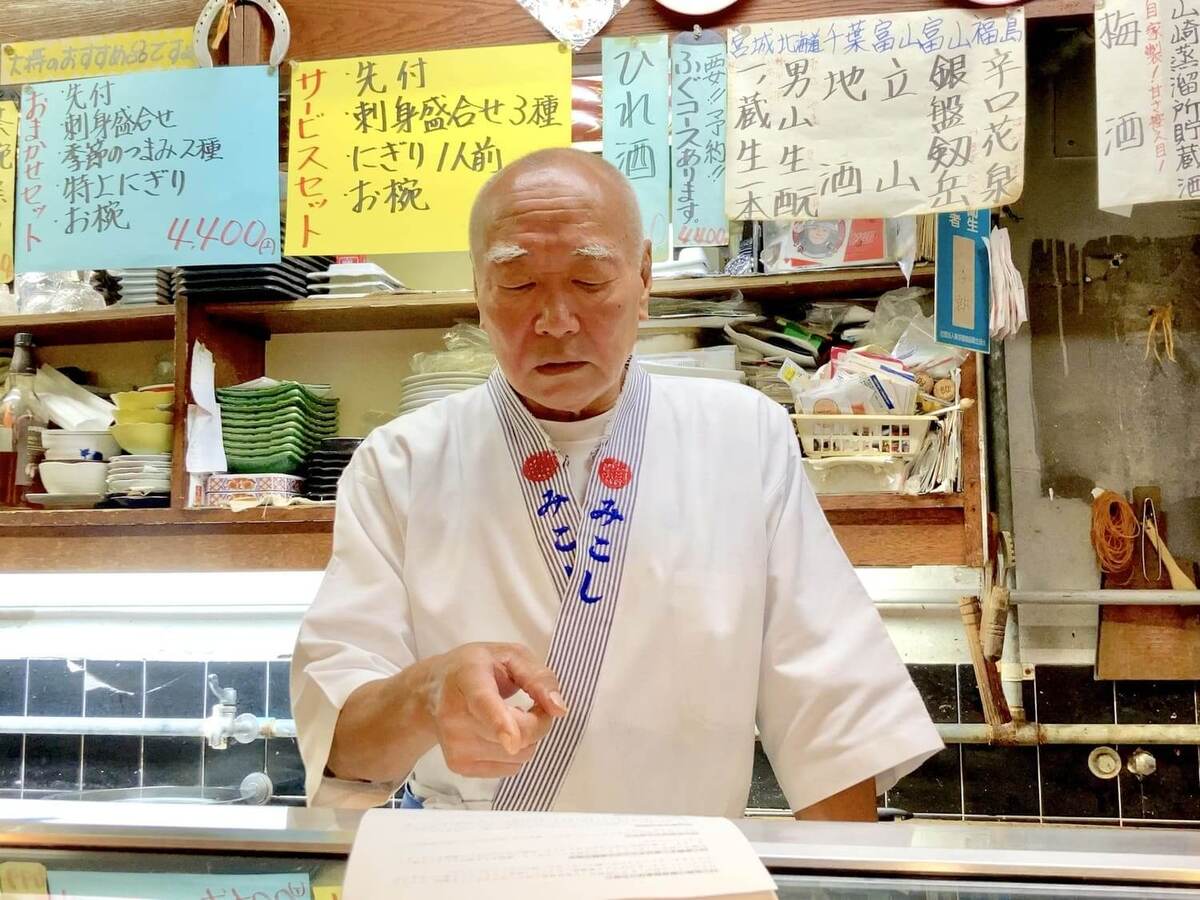 大将のおすすめ品です
おまかせセット
・先付
・刺身盛合せ
・季節のつまみ2種
・特上にぎり
・お椀
4.400円
サービスセット
・先付
・刺身盛合せ3種
・にぎり1人前
・お椀
ひれ酒
要!!予約!!
ふぐコースあります。
4.400
宮城 一ノ蔵生一本
北海道 男山生酛
千葉 地酒
富山 立山
富山 銀盤剱岳
福島 辛口花泉
山崎蒸溜所貯蔵
自家製!甘さ控え目!
梅酒
みこし
みこし